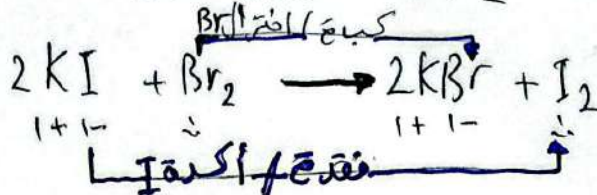 كسب e / اختزال Br
2KI + Br₂ ⟶ 2KBr + I₂
1+ 1- 1+ 1-
فقد e / أكسدة I